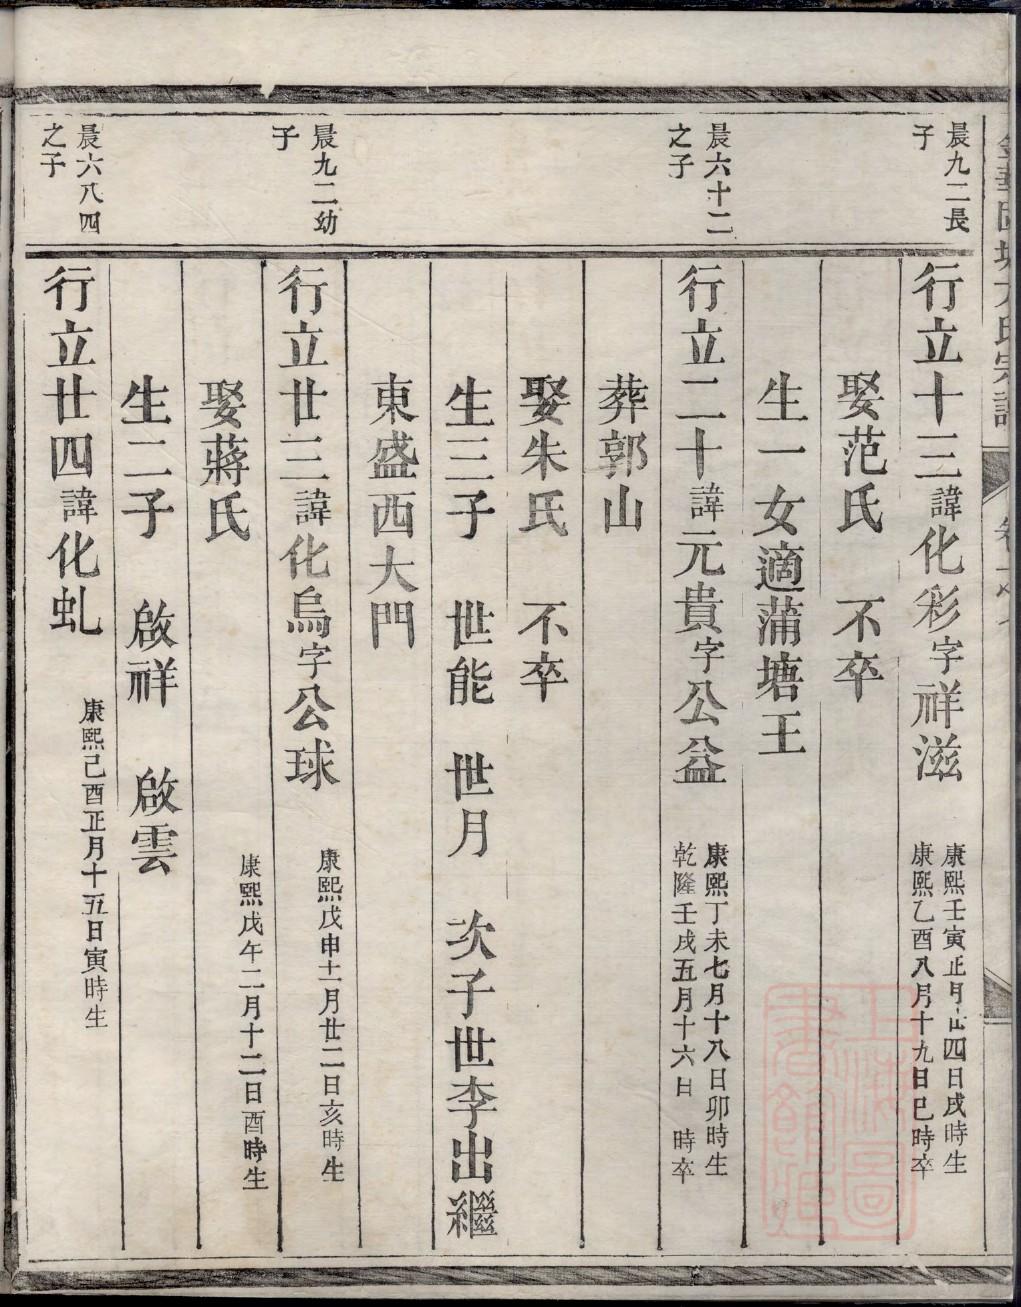 晨九二長
子
行立十三諱化彩字祥滋
康熙壬寅正月廿四日戌時生
康熙乙酉八月十九日巳時卒
娶范氏 不卒
生一女適蒲塘王
晨六十二
之子
行立二十諱元貴字公益
康熙丁未七月十八日卯時生
乾隆壬戌五月十六日 時卒
葬郭山
娶朱氏 不卒
生三子 世能 世月 次子世李出繼
東盛西大門
晨九二幼
子
行立廿三諱化烏字公球
康熙戊申十一月廿二日亥時生
娶蔣氏
康熙戊午二月十二日酉時生
生二子 啟祥 啟雲
晨六八四
之子
行立廿四諱化虬
康熙己酉正月十五日寅時生
上海圖
書館藏